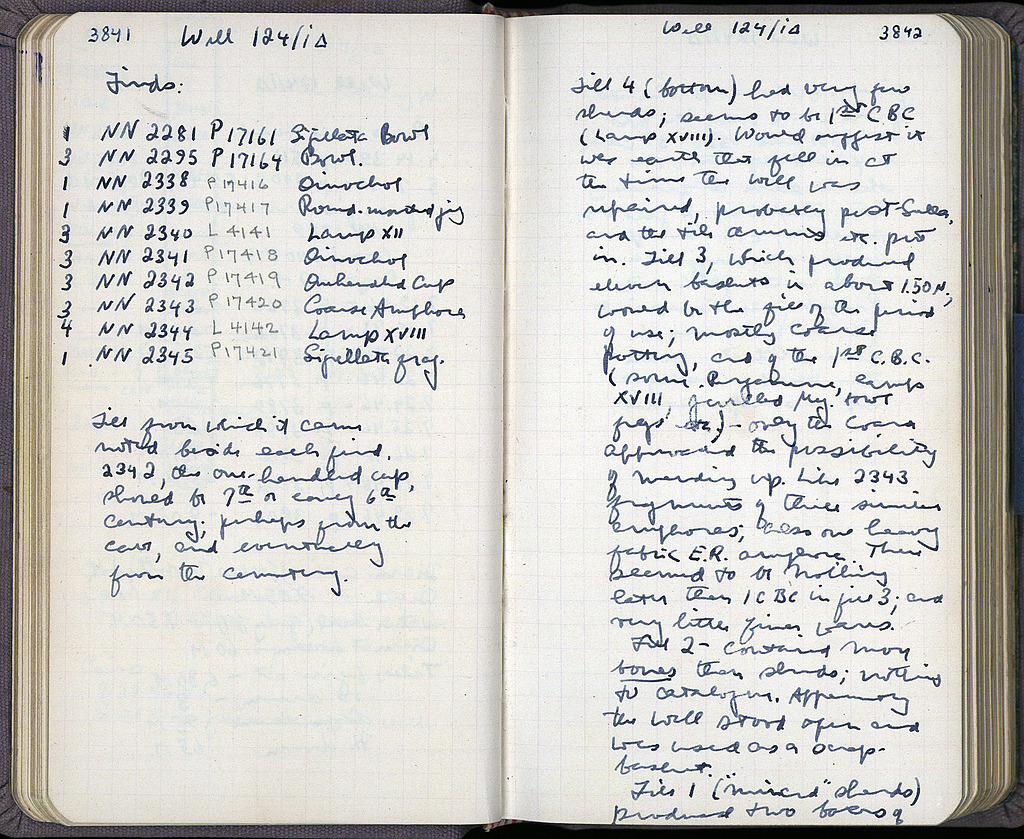 3841 Well 124/ΙΔ
Finds:
1 NN 2281 P 17161 Sigillata Bowl
3 NN 2295 P 17164 Bowl.
1 NN 2338 P 17416 Oinochoe
1 NN 2339 P 17417 Round-mouthed jug
3 NN 2340 L 4141 Lamp XII
3 NN 2341 P 17418 Oinochoe
3 NN 2342 P 17419 Onehandled Cup
3 NN 2343 P 17420 Coarse Amphora
4 NN 2344 L 4142 Lamp XVIII
1 NN 2345 P 17421 Sigillata frag.
Fill from which it came
noted beside each find.
2342, the one-handled cup,
should be 7th or early 6th
century; perhaps from the
cave, and eventually
from the cemetery.
Well 124/ΙΔ 3842
Fill 4 (bottom) had very few
sherds; seems to be 1st C BC
(Lamp XVIII). Would suggest it
was earth that fell in at
the time the well was
repaired, probably post Sulla,
and the tile drums etc. put
in. Fill 3, which produced
eleven baskets in about 1.50 M,
would be the fill of the period
of use; mostly coarse
pottery, and of the 1st C. B.C.
(some Pergamene, lamps
XVIII, jewelled Meg. bowl
frags etc.) - only the coarse
approached the possibility
of mending up. Like 2343
fragments of three similar
amphoras; also one heavy
fabric E.R. amphora. There
seemed to be nothing
later than 1 C BC in fill 3; and
very little finer wares.
Fill 2 - contained more
bones than sherds; nothing
to catalogue. Apparently
the well stood open and
was used as a scrap-
basket.
Fill 1 ("mixed" sherds)
produced two boxes of